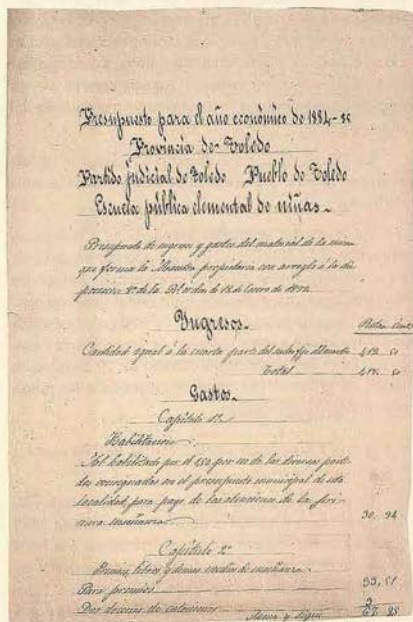 Presupuesto para el año económico de 1884-85
Provincia de Toledo
Partido judicial de Toledo Pueblo de Toledo
Escuela pública elemental de niñas.
Presupuesto de ingresos y gastos del material de la misma
que forma la Maestra propietaria con arreglo á la
posición de la Rl orden de 12 de Enero de 1872
Ingresos.
Cantidad igual á la cuarta parte del sueldo fijo del
Total
Gastos.
Capítulo 1º
Habilitación
Al habilitado por el 1,50 por % de las diversas parti-
das consignadas en el presupuesto municipal de esta
localidad, para pago de las atenciones de la pri-
mera enseñanza 30, 94
Capítulo 2º
libros y demas medios de enseñanza.
Para premios 33, 51
Dos docenas de
Suma y sigue